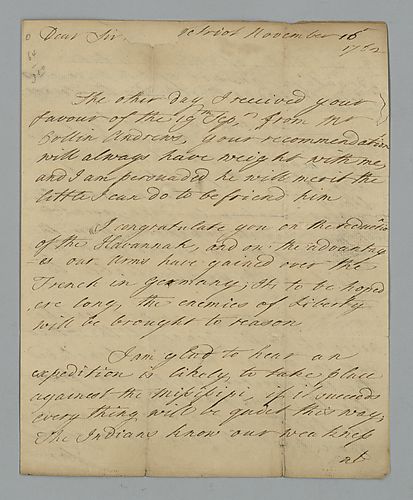 Dear Sir, Detroit November 16
1762
The other day I received your
favour of the 19th Sep.r from Mr
Collin Andrews, your recommendation
will always have weight with me,
and I am persuaded he will merit the
little I can do to befriend him
I congratulate you on the reduction
of the Havannah, and on the advantag
=es our Arms have gained over the
French in Germany, Its to be hoped
ere long, the enemies of Liberty
will be brought to reason.
I am glad to hear an
expedition is likely to take place
against the Misisipi, if it succeeds
every thing will be quiet this way,
The Indians know our weakness
at